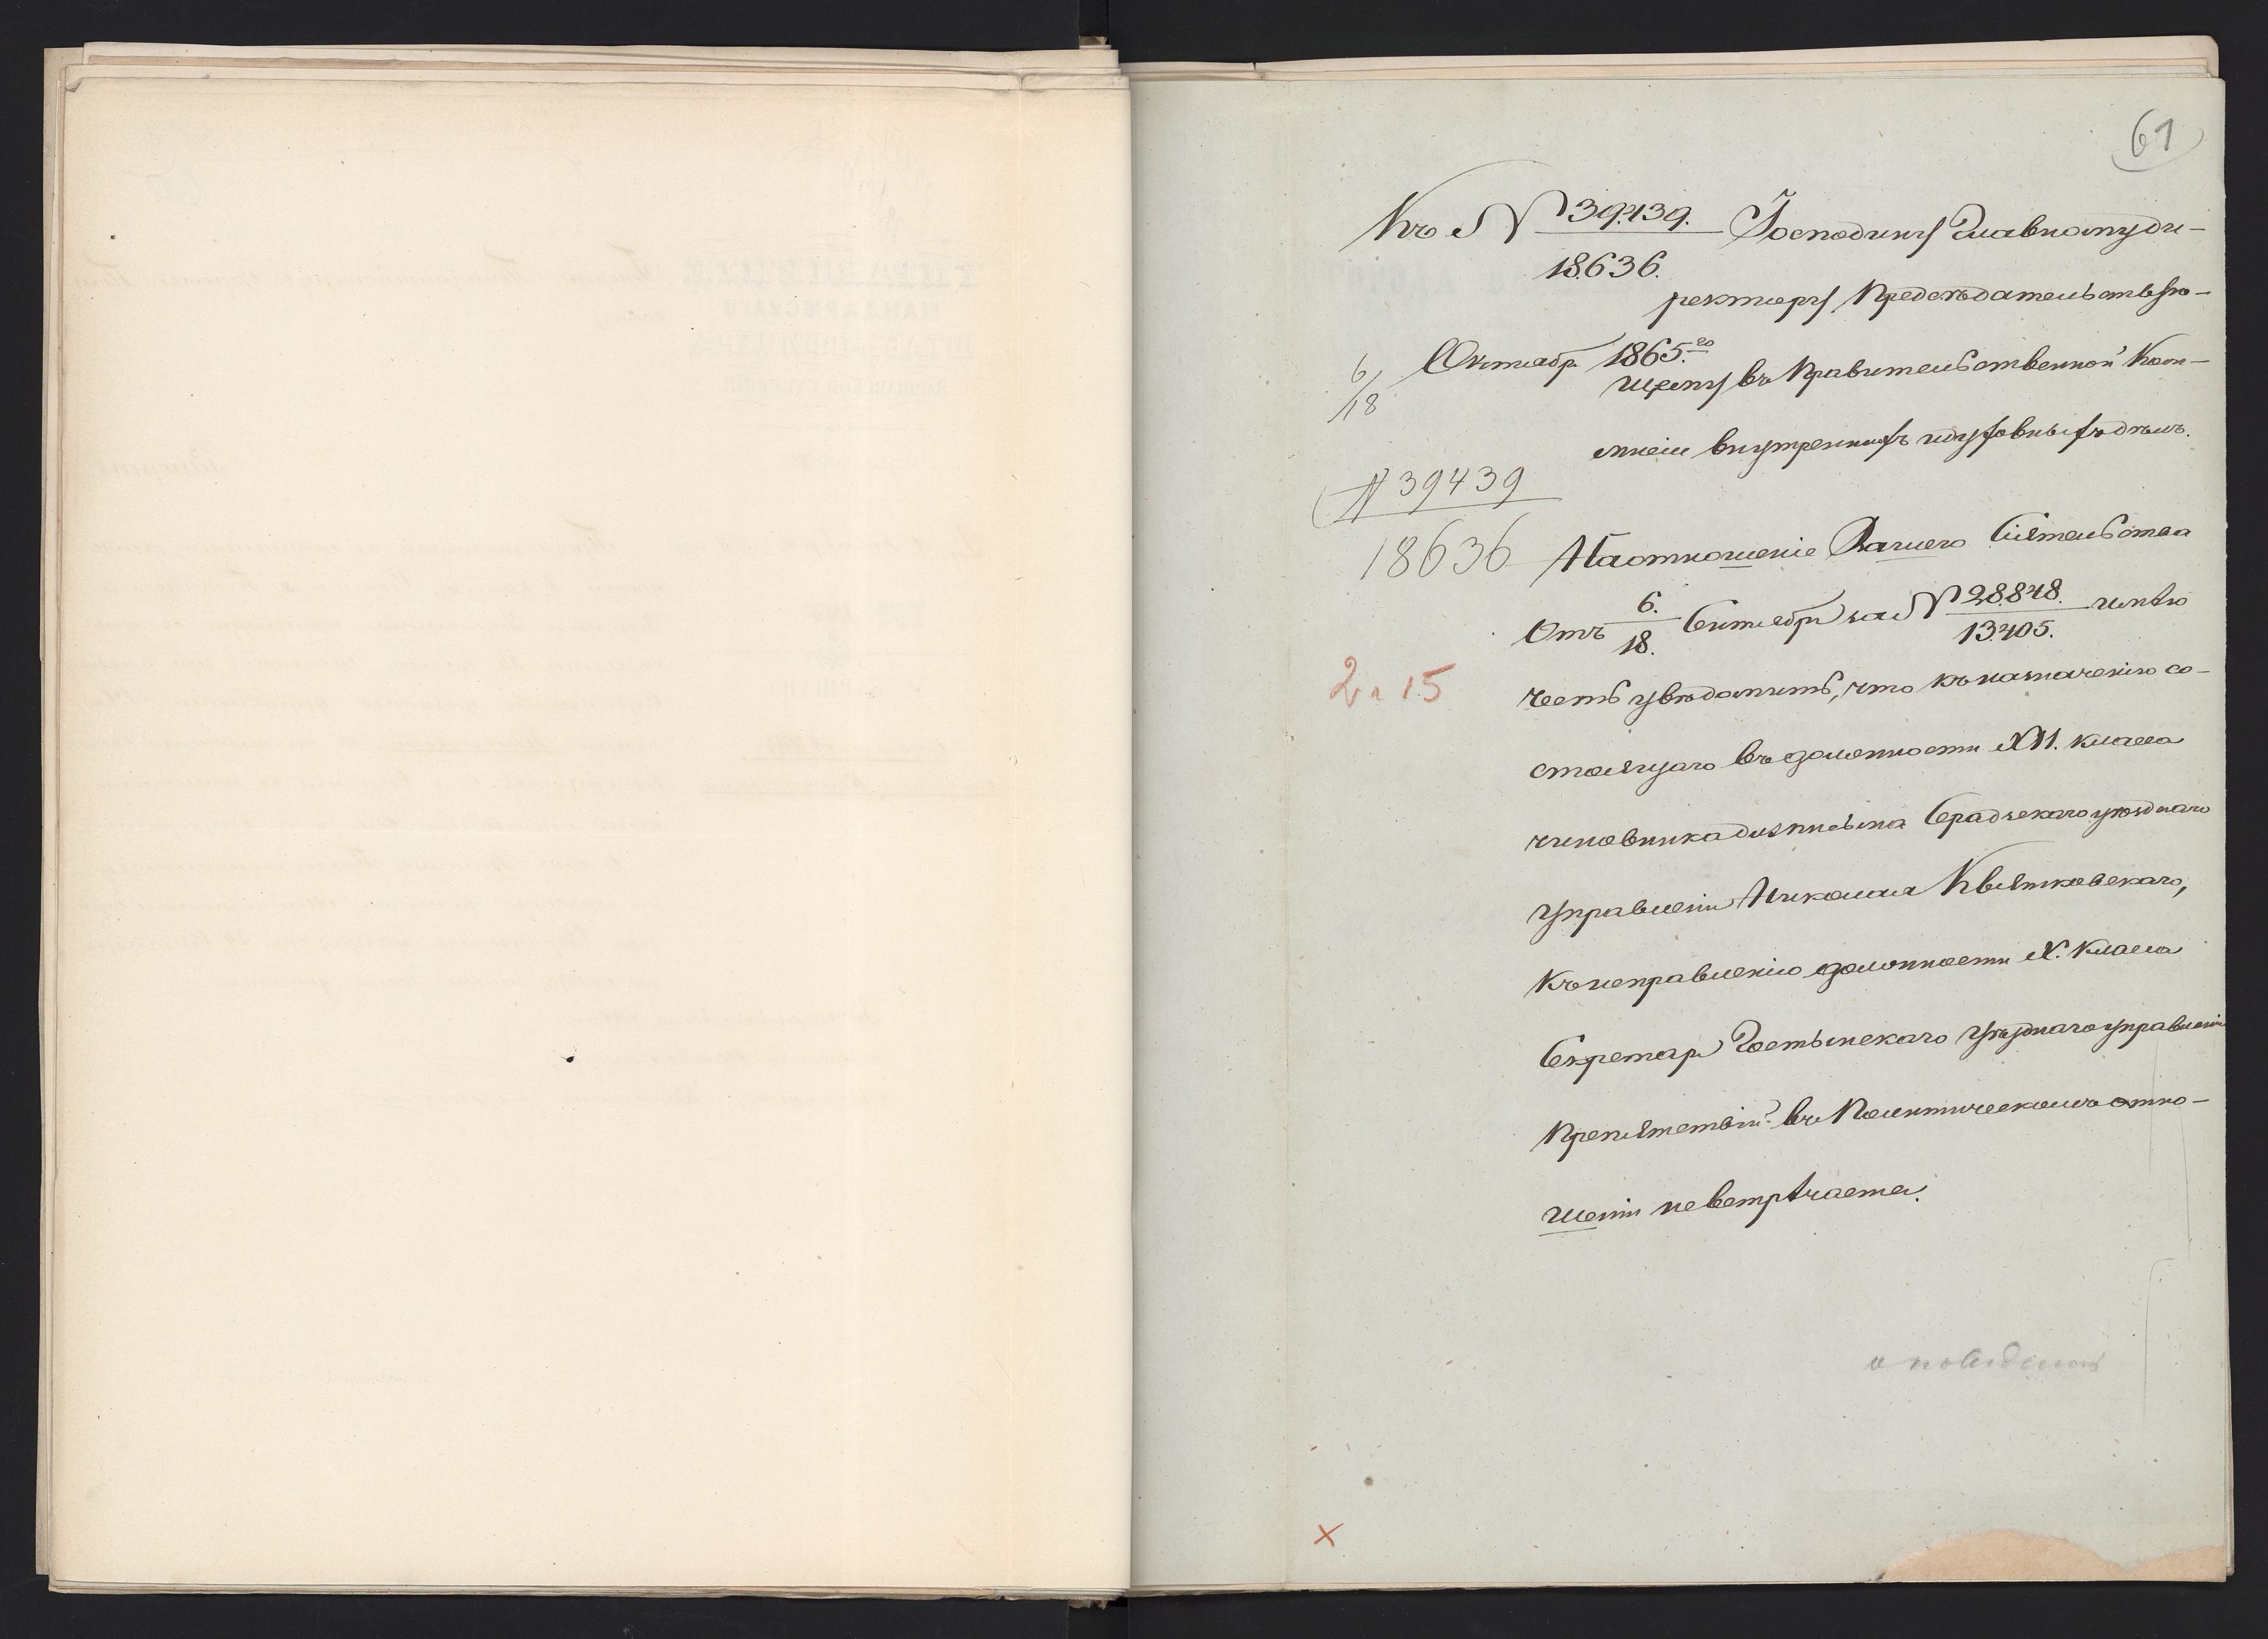 61
Къ № 39439. Господину Главному ди-
18636.
ректору Предсѣдательствую-
6/18 Октября 1865.го
щему въ Правительственной Ком-
мисіи внутреннихъ и духовныхъ дѣлъ.
№ 39439
18636
На отношеніе Вашего Сіятельства
Отъ 6./18. Сентября за № 28.848./13405. имѣю
честь увѣдомить, что къ назначенію со-
стоящаго въ должности XII. класса
чиновника для письма Серадзскаго уѣзднаго
Управленія Николая Квятковскаго,
Къ исправленію должности X. Класса
Секретаря Гостынскаго Уѣзднаго управленія
Препятствій въ Политическомъ отно-
шеніи не встрѣчается.
2 15